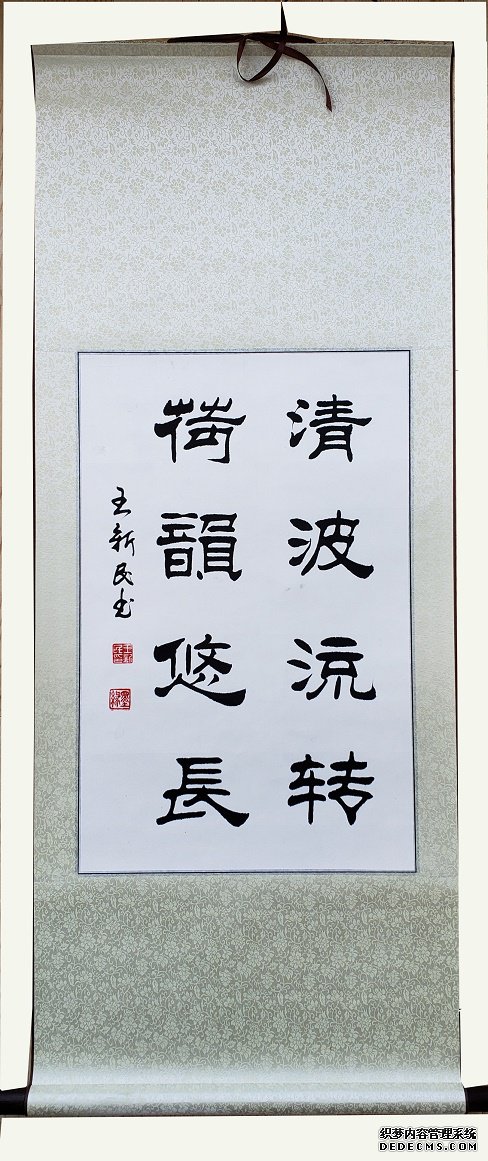 清波流转
荷韻悠長
王新民书
织梦内容管理系统
DEDECMS.COM